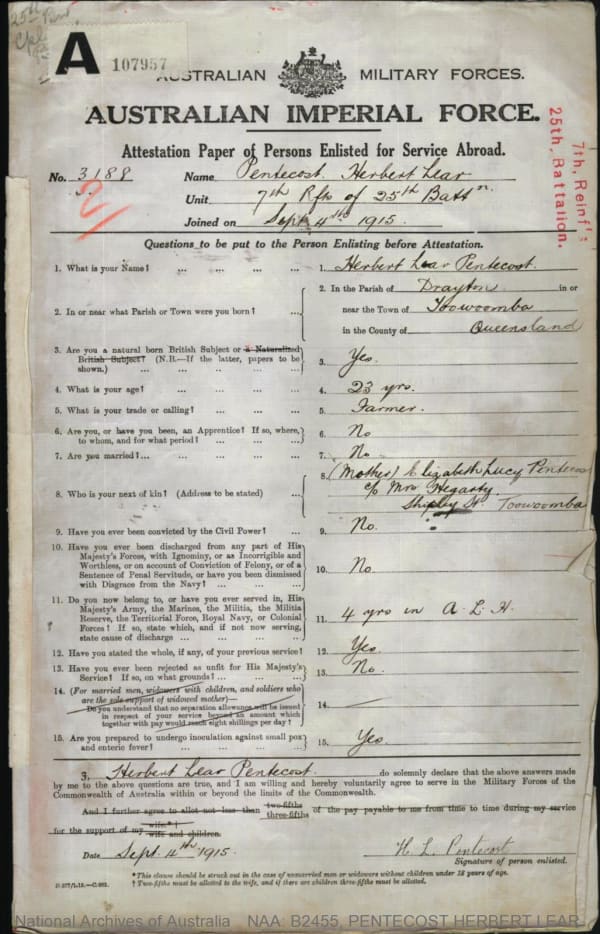 25th
A 107957
AUSTRALIAN MILITARY FORCES.
AUSTRALIAN IMPERIAL FORCE.
Attestation Paper of Persons Enlisted for Service Abroad.
7th, Reinf's
25th, Battalion.
No. 3188 Name Pentecost. Herbert Lear
Unit 7th Rfts of 25th Battn.
Joined on Sept 4th 1915.
Questions to be put to the Person Enlisting before Attestation.
1. What is your Name? ... ... ... ... 1. Herbert Lear Pentecost.
2. In or near what Parish or Town were you born? ... 2. In the Parish of Drayton in or
near the Town of Toowoomba
in the County of Queensland
3. Are you a natural born British Subject or a Naturalized
British Subject? (N.B.—If the latter, papers to be
shown.) ... ... ... ... 3. Yes.
4. What is your age? ... ... ... ... 4. 23 yrs.
5. What is your trade or calling? ... ... ... 5. Farmer.
6. Are you, or have you been, an Apprentice? If so, where,
to whom, and for what period? ... ... ... 6. No
7. Are you married? ... ... ... ... 7. No
8. Who is your next of kin? (Address to be stated) ... 8. (Mother) Elizabeth Lucy Pentecost
c/o Mrs Hegarty.
Shipley St Toowoomba
9. Have you ever been convicted by the Civil Power? ... 9. No.
10. Have you ever been discharged from any part of His
Majesty's Forces, with Ignominy, or as Incorrigible and
Worthless, or on account of Conviction of Felony, or of a
Sentence of Penal Servitude, or have you been dismissed
with Disgrace from the Navy? ... ... ... 10. No.
11. Do you now belong to, or have you ever served in, His
Majesty's Army, the Marines, the Militia, the Militia
Reserve, the Territorial Force, Royal Navy, or Colonial
Forces? If so, state which, and if not now serving,
state cause of discharge ... ... ... 11. 4 yrs in A. L. H.
12. Have you stated the whole, if any, of your previous service? 12. Yes.
13. Have you ever been rejected as unfit for His Majesty's
Service? If so, on what grounds? ... ... ... 13. No.
14. (For married men, widowers with children, and soldiers who
are the sole support of widowed mother)—
Do you understand that no separation allowance will be issued
in respect of your service beyond an amount which
together with pay would reach eight shillings per day? 14.
15. Are you prepared to undergo inoculation against small pox
and enteric fever? ... ... ... ... 15. Yes.
I, Herbert Lear Pentecost. do solemnly declare that the above answers made
by me to the above questions are true, and I am willing and hereby voluntarily agree to serve in the Military Forces of the
Commonwealth of Australia within or beyond the limits of the Commonwealth.
And I further agree to allot not less than two-fifths three-fifths of the pay payable to me from time to time during my service
for the support of my wife* wife and children.
Date Sept. 4th 1915. H. L. Pentecost
Signature of person enlisted.
*This clause should be struck out in the case of unmarried men or widowers without children under 18 years of age.
† Two-fifths must be allotted to the wife, and if there are children three-fifths must be allotted.
National Archives of Australia NAA: B2455, PENTECOST HERBERT LEAR